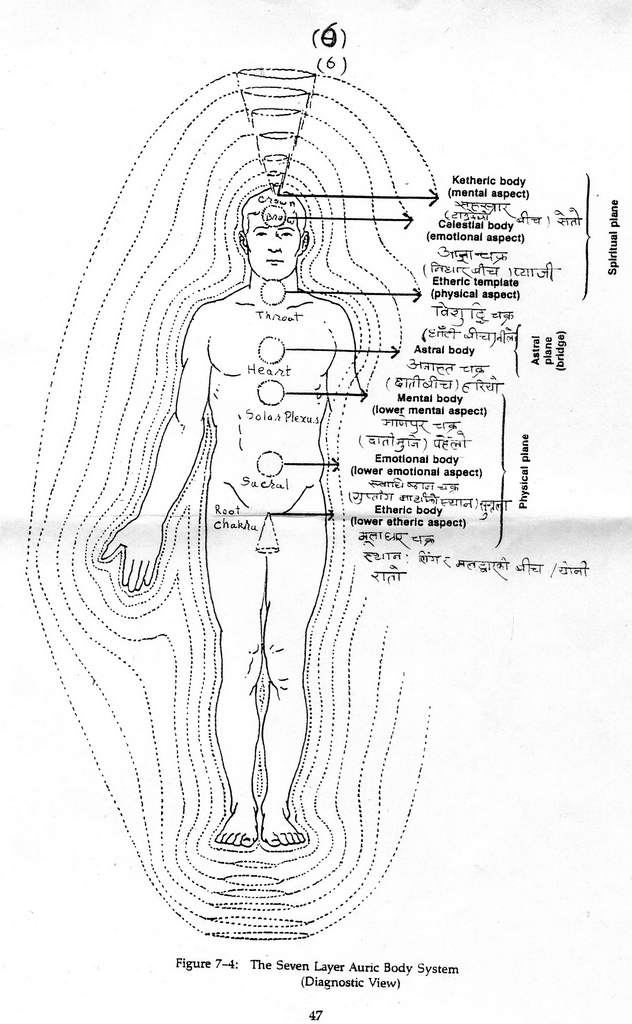 (6)
(6)
Ketheric body
(mental aspect)
सहस्रार
बीच) सेतो
Celestial body
(emotional aspect)
आज्ञा चक्र
(निधार बीच) प्याजी
Etheric template
(physical aspect)
विशुद्दि चक्र
(घाँटी बीच) नीलो
Astral body
अनाहत चक्र
(छाती बीच) हरियो
Mental body
(lower mental aspect)
चक्र
पहेंलो
Emotional body
(lower emotional aspect)
स्वाधिष्ठान चक्र
Etheric body
(lower etheric aspect)
मूलाधार चक्र
स्थान: लिंग र मलद्वारको बीच / योनी
रातो
Spiritual plane
Astral
plane
(bridge)
Physical plane
Crown
Brow
Throat
Heart
Solar Plexus
Sacral
Root
Chakra
Figure 7-4: The Seven Layer Auric Body System
(Diagnostic View)
47